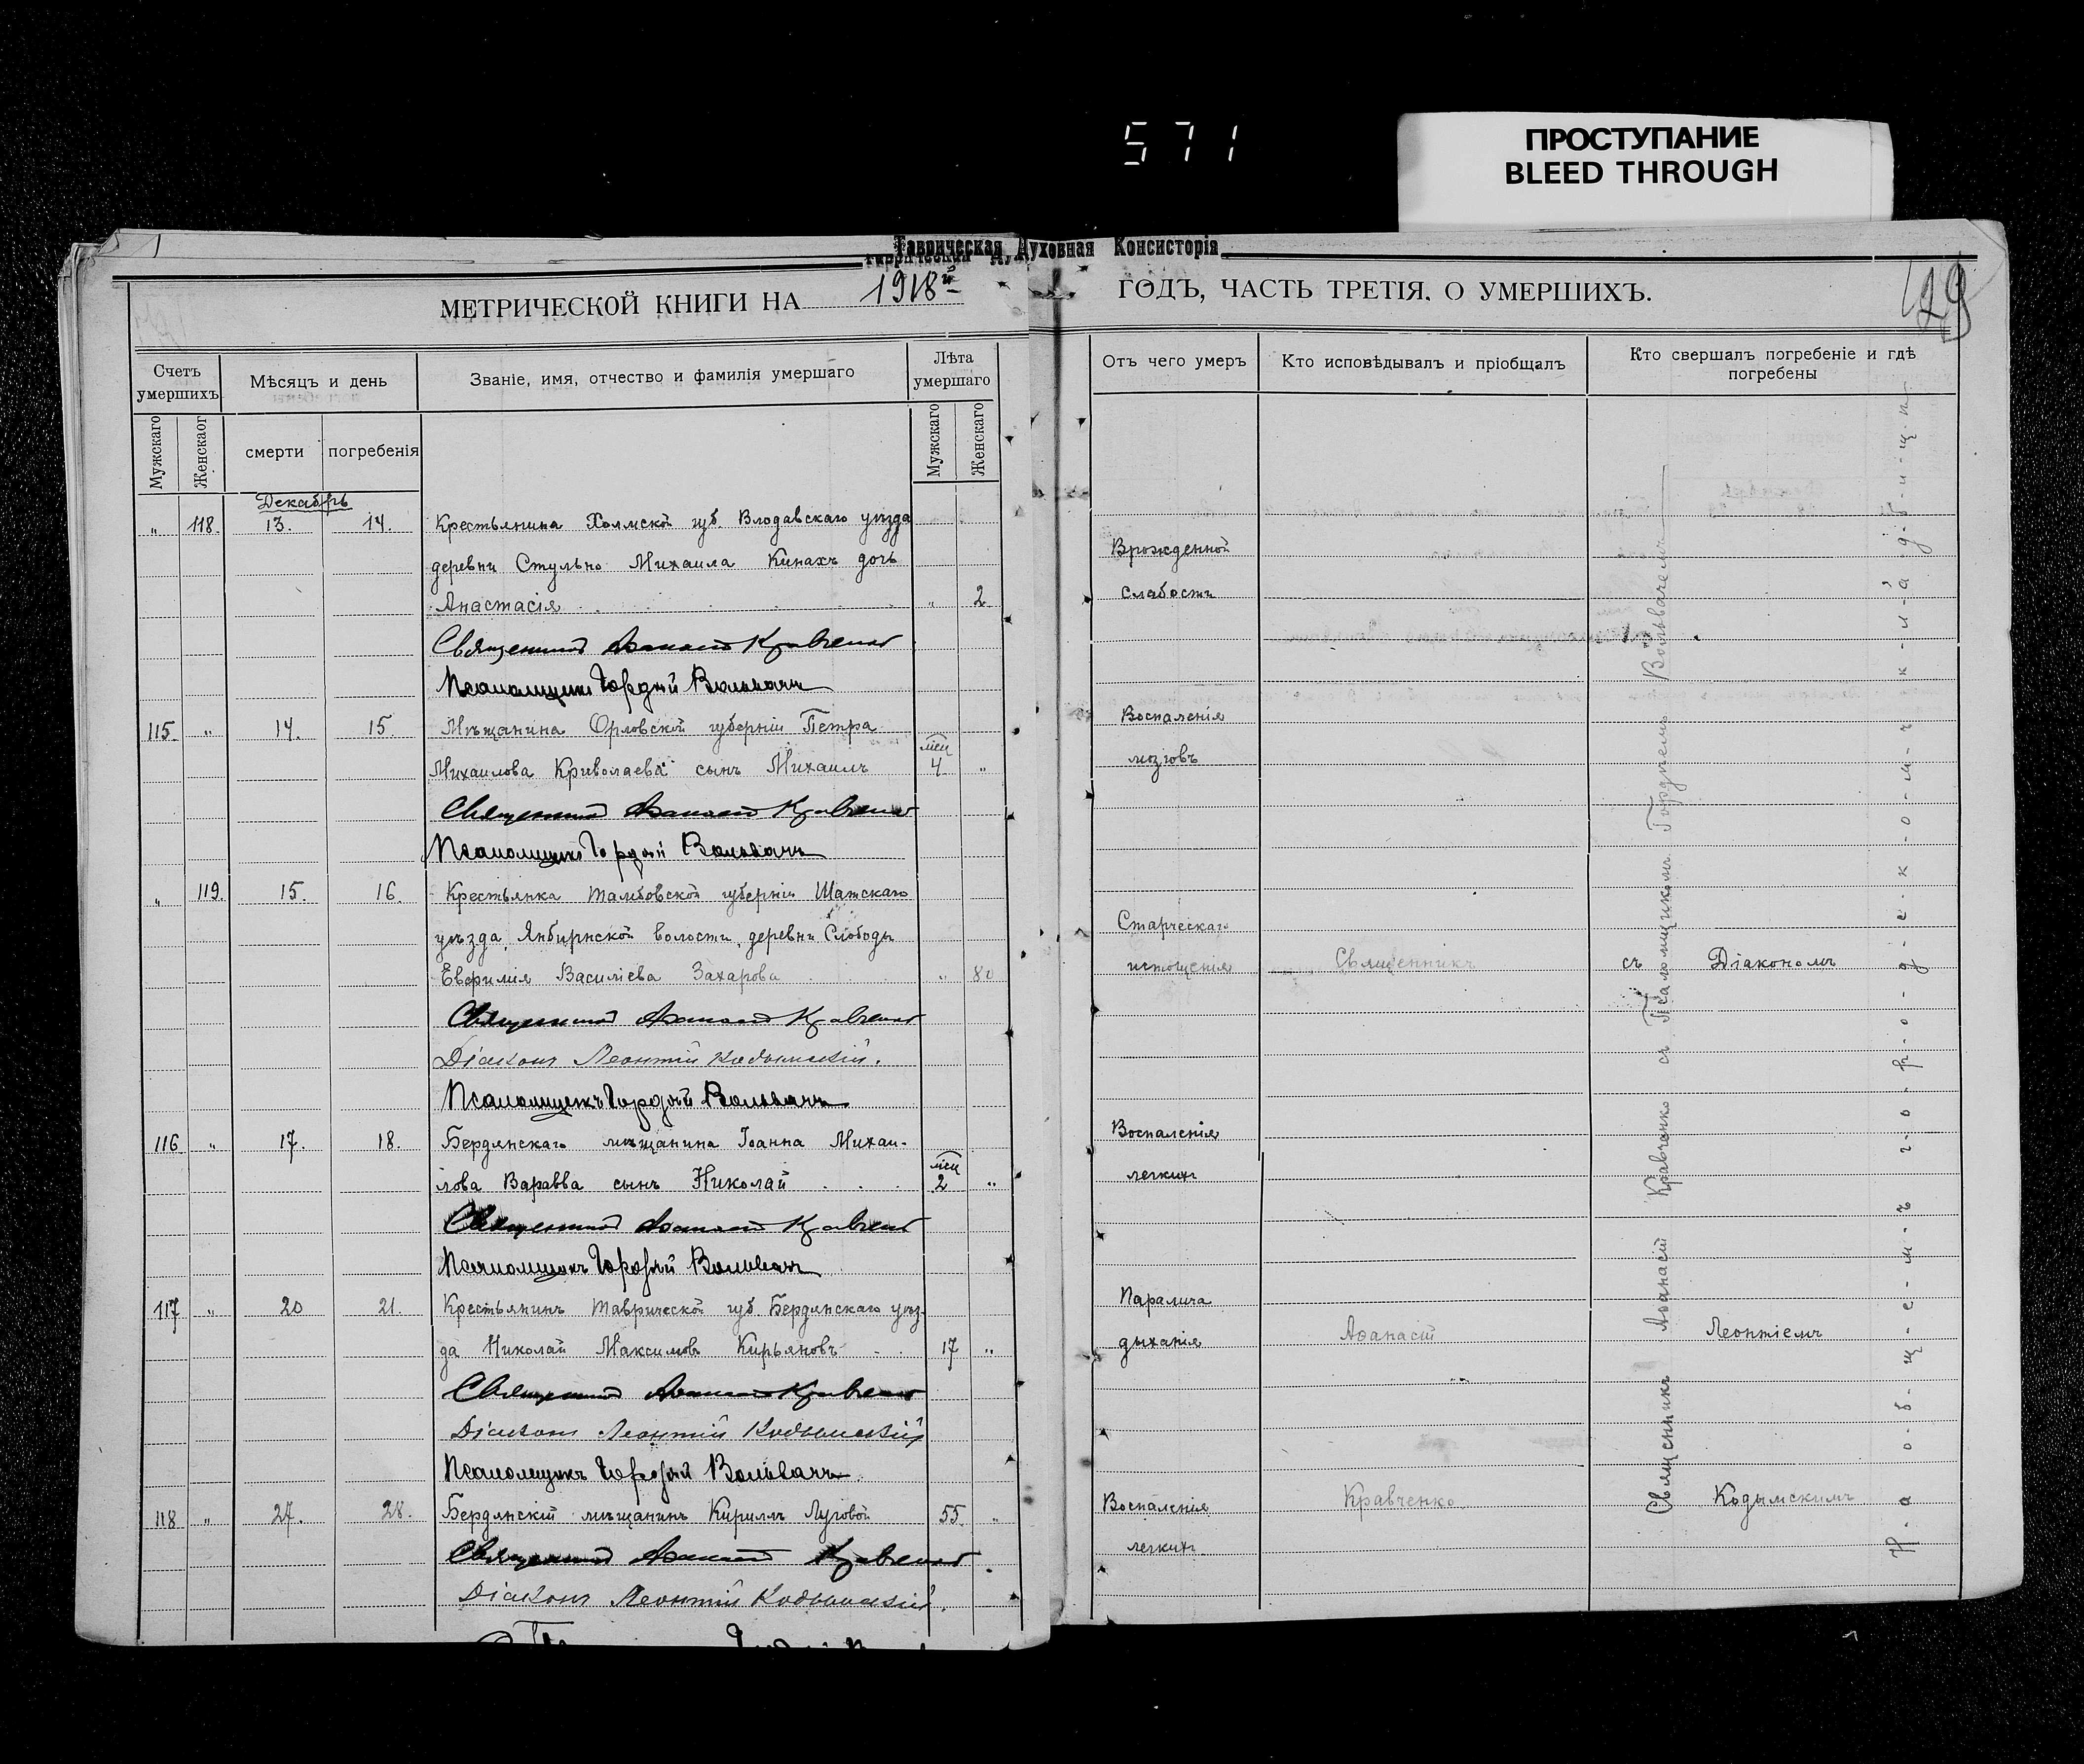 571
ПРОСТУПАНИЕ
BLEED THROUGH
Таврическая Духовная Консисторія
МЕТРИЧЕСКОЙ КНИГИ НА 1918й ГОДЪ, ЧАСТЬ ТРЕТІЯ. О УМЕРШИХЪ.
129
Счетъ умершихъ
Мѣсяцъ и день
Званіе, имя, отчество и фамилія умершаго
Лѣта умершаго
Отъ чего умеръ
Кто исповѣдывалъ и пріобщалъ
Кто свершалъ погребеніе и гдѣ погребены
Мужскаго
Женскаог
смерти
погребенія
Мужскаго
Женскаго
Декабрь
" 118. 13. 14. Крестьянина Холмской губ. Влодавскаго уѣзда
деревни Стульно Михаила Кинахъ дочь
Анастасія " 2
Врожденной
слабости
Священникъ Аѳанасій Кравченко
Псаломщикъ Гордѣй Вольвачъ
115. " 14. 15. Мѣщанина Орловской губерніи Петра
Михаилова Криволаева сынъ Михаилъ мѣц 4 "
Воспаленія
мозговъ
Священникъ Аѳанасій Кравченко
Псаломщикъ Гордѣй Вольвачъ
" 119. 15. 16. Крестьянка Тамбовской губерніи Шатскаго
уѣзда, Янбирнской волости, деревни Слободы
Евфимія Василіева Захарова " 80
Старческаго
истощенія
Священникъ Аѳанасій Кравченко
Діаконъ Леонтій Кодымскій.
Псаломщикъ Гордѣй Вольвачъ
116 " 17. 18. Бердянскаго мѣщанина Іоанна Михаи-
лова Варавва сынъ Николай мѣц 2 "
Воспаленія
легкихъ
Священникъ Аѳанасій Кравченко
Псаломщикъ Гордѣй Вольвачъ
117 " 20 21. Крестьянинъ Таврической губ. Бердянскаго уѣз-
да Николай Максимовъ Кирьяновъ 17 "
Паралича
дыханія
Священникъ Аѳанасій Кравченко
Діаконъ Леонтій Кодымскій
Псаломщикъ Гордѣй Вольвачъ
118 " 27. 28. Бердянскій мѣщанинъ Кириллъ Луговой 55. "
Воспаленія
легкихъ
Священникъ Аѳанасій Кравченко
Діаконъ Леонтій Кодымскій.
Священникъ
Аѳанасій
Кравченко
съ Діакономъ
Леонтіемъ
Кодымскимъ
Священникъ Аѳанасій Кравченко съ Псаломщикомъ Гордѣемъ Вольвачемъ
На о-б-щ-е-м-ъ г-о-р-о-д-с-к-о-м-ъ к-л-а-д-б-и-щ-ѣ